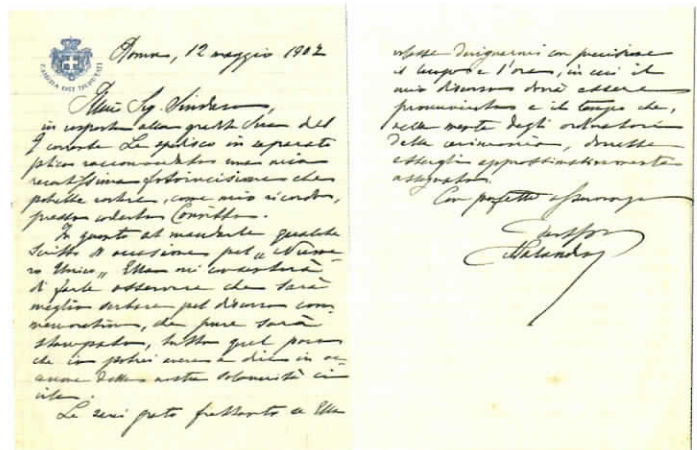 CAMERA DEI DEPUTATI
Roma, 12 maggio 1902
Sig. Sindaco,
in risposta alla gradita Sua del
9 corrente Le spedisco in separato
plico raccomandato una mia
recentissima fotoincisione che
potrete unire, come mio ricordo,
presso codesto Comitato.
In quanto al mandarle qualche
scritto d'occasione pel "Nume-
ro Unico", Ella mi consentirà
di farle osservare che sarà
meglio serbare pel discorso com-
memorativo, che pure sarà
stampato, tutto quel poco
che io potrei avere a dire in oc-
casione della nostra solennità ci-
vile.
Le sarei grato frattanto se Ella
volesse designarmi con precisione
il luogo e l'ora, in cui il
mio discorso dovrà essere
pronunciato e il tempo che,
nella mente degli ordinatori
della cerimonia, dovrebbe
essergli approssimativamente
assegnato.
Con perfetta osservanza